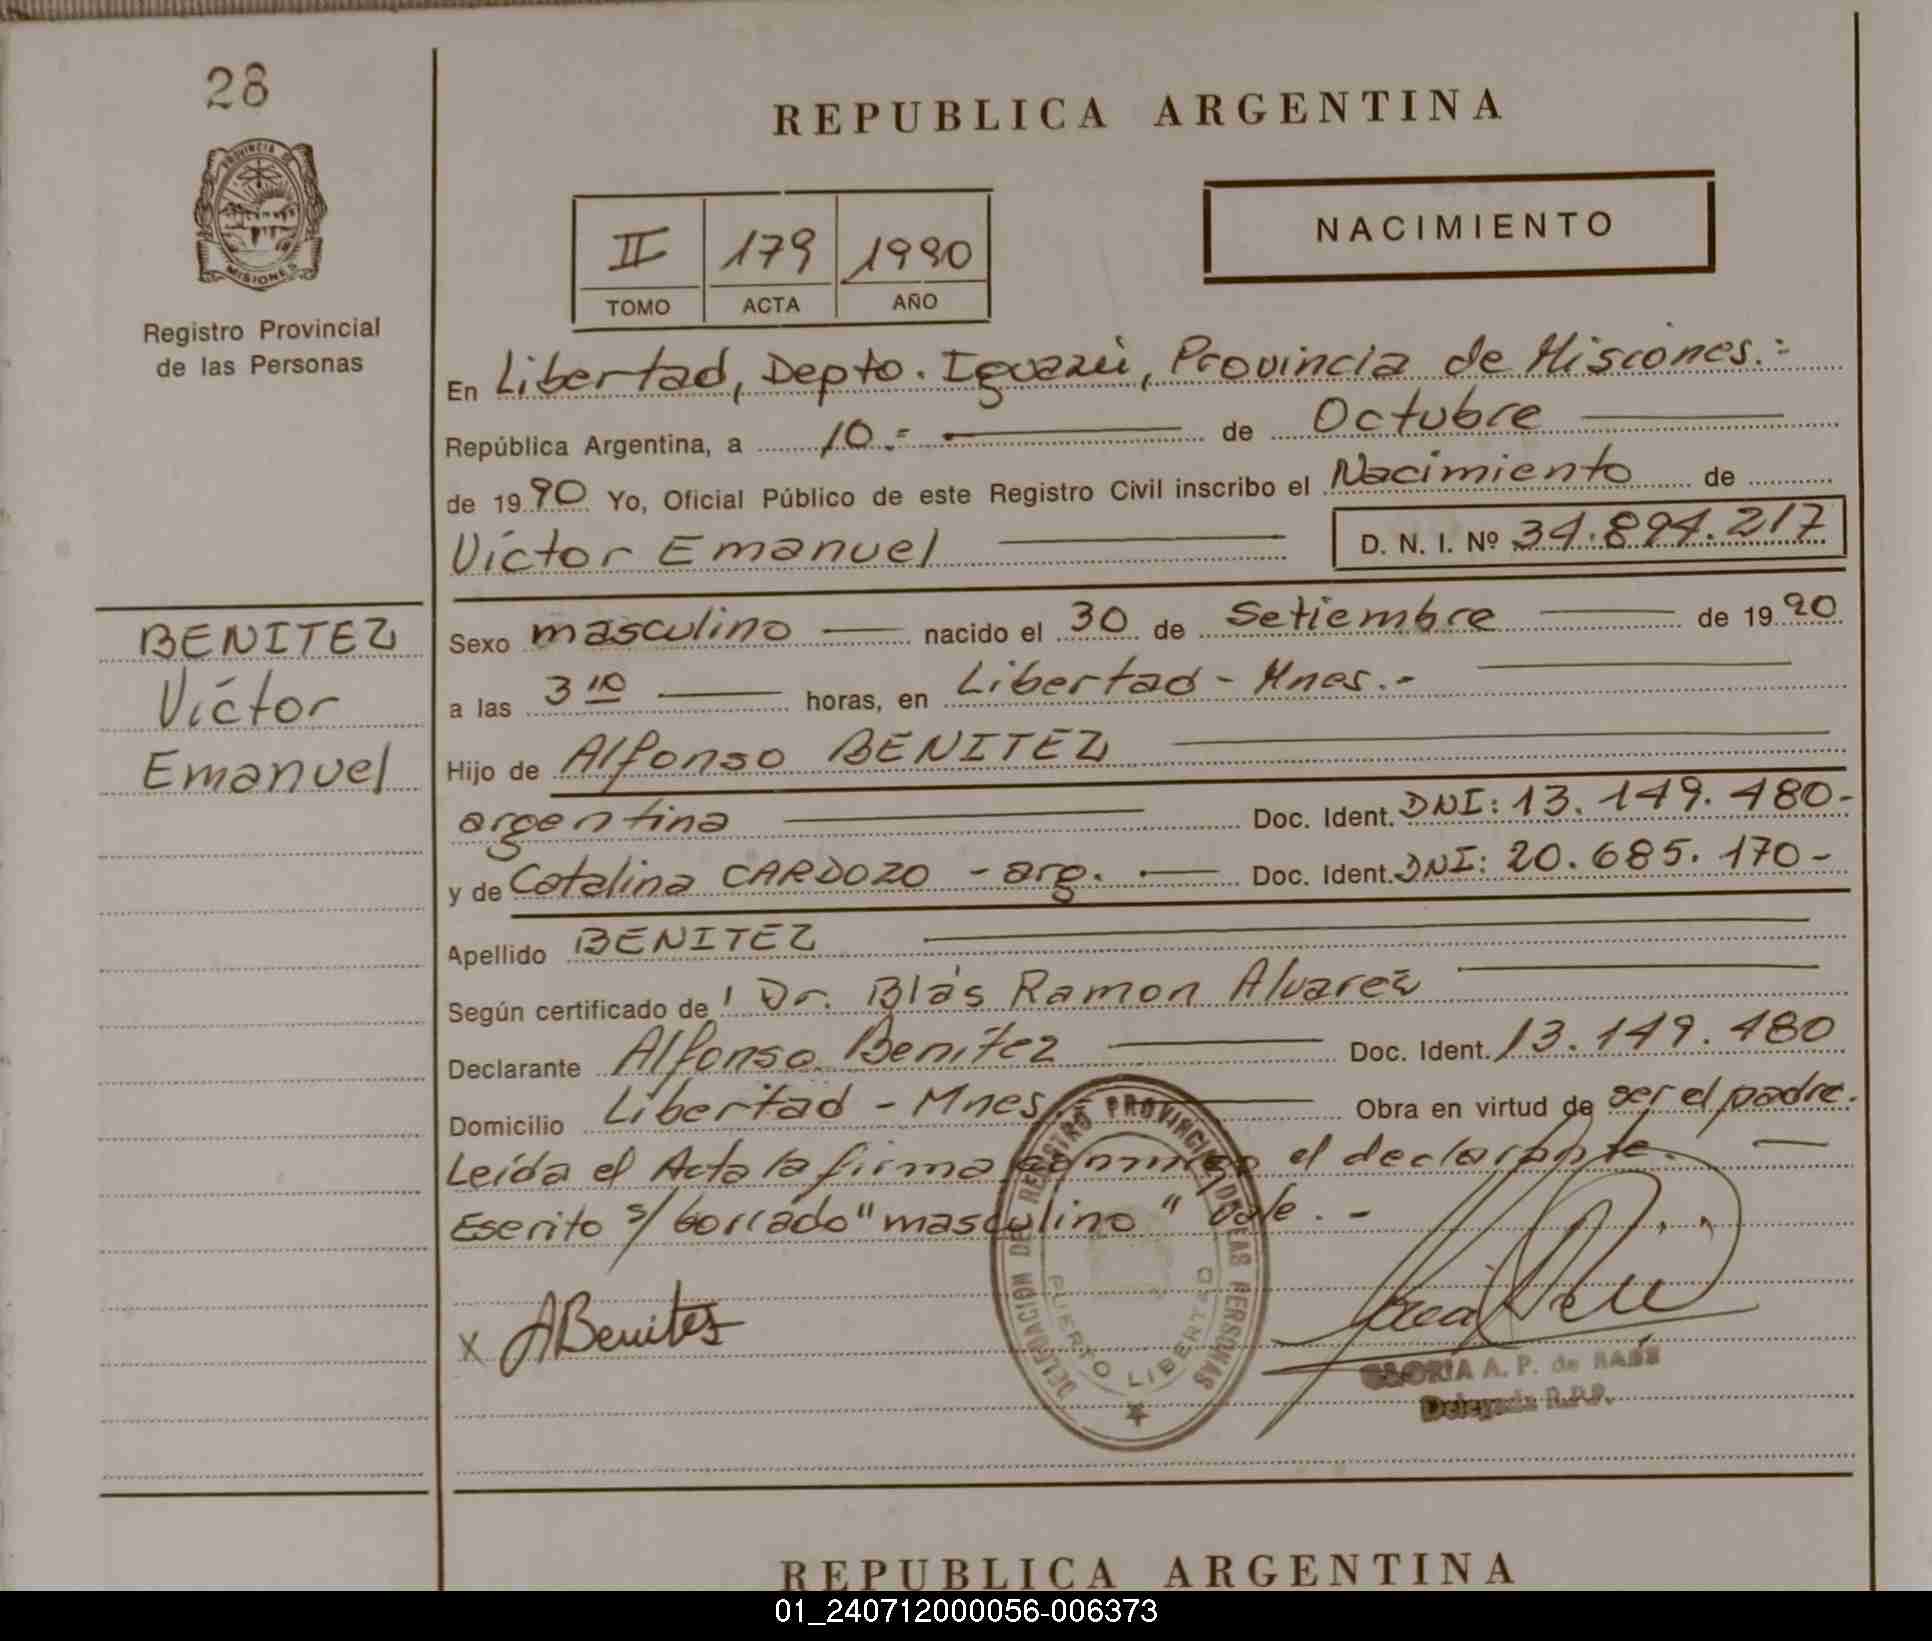 28
REPUBLICA ARGENTINA
PROVINCIA DE
MISIONES
Registro Provincial
de las Personas
II 179 1990
TOMO ACTA AÑO
NACIMIENTO
En Libertad, Depto. Iguazú, Provincia de Misiones.=
República Argentina, a 10.= de Octubre
de 1990 Yo, Oficial Público de este Registro Civil inscribo el Nacimiento de
Víctor Emanuel D. N. I. Nº 34.894.217
BENITEZ
Víctor
Emanuel
Sexo masculino nacido el 30 de Setiembre de 1990
a las 3 10 horas, en Libertad - Mnes.-
Hijo de Alfonso BENITEZ
argentina Doc. Ident. DNI: 13.149.480-
y de Catalina CARDOZO - arg. Doc. Ident. DNI: 20.685.170-
Apellido BENITEZ
Según certificado de Dr. Blás Ramon Alvarez
Declarante Alfonso Benítez Doc. Ident. 13.149.480
Domicilio Libertad - Mnes. Obra en virtud de ser el padre.
Leída el Acta la firma conmigo el declarante.
Escrito s/ borrado "masculino" Vale.-
DELEGACION DEL REGISTRO PROVINCIAL DE LAS PERSONAS
PUERTO LIBERTAD
x ABenites
GLORIA A. P. de
Delegada R.P.P.
REPUBLICA ARGENTINA
01_240712000056-006373